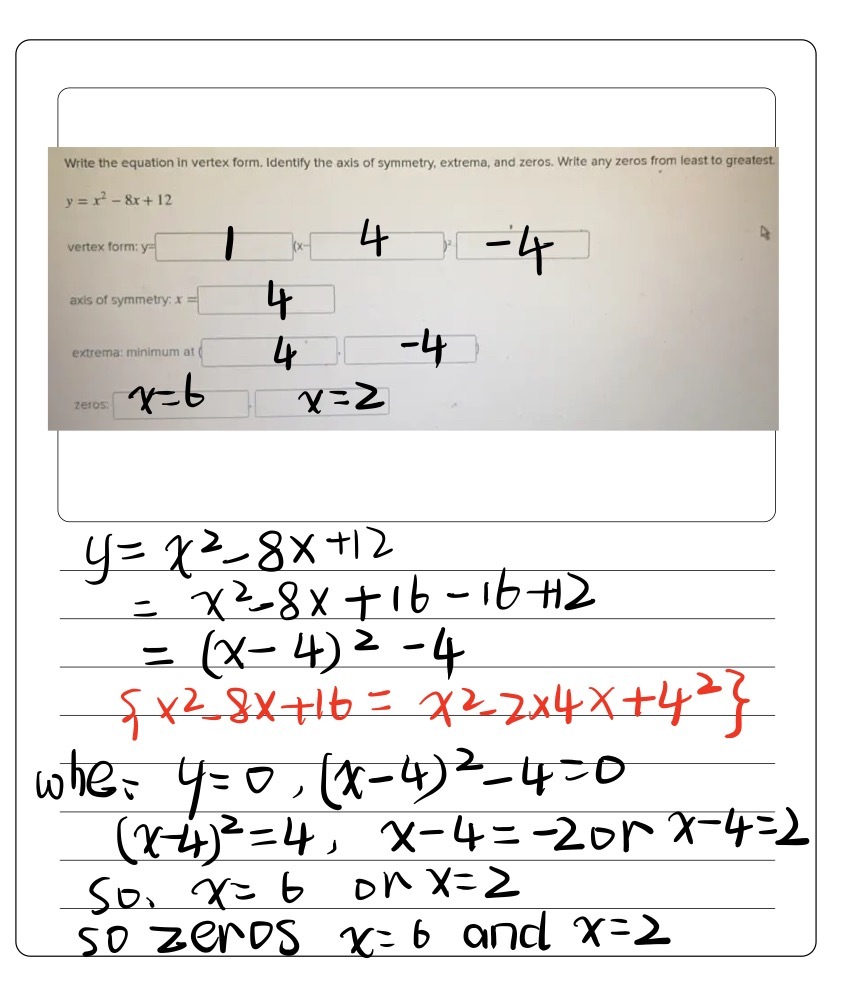 Write the equation in vertex form. Identify the axis of symmetry, extrema, and zeros. Write any zeros from least to greatest.
y = x² − 8x + 12
vertex form: y= 1 (x− 4 )² -4
axis of symmetry: x = 4
extrema: minimum at ( 4 , -4 )
zeros: x=6 , x=2
y= x²-8x+12
= x²-8x+16-16+12
= (x-4)²-4
{x²-8x+16= x²-2×4x+4²}
whe: y=0, (x-4)²-4=0
(x-4)²=4, x-4=-2 or x-4=2
so, x=6 or x=2
so zeros x=6 and x=2